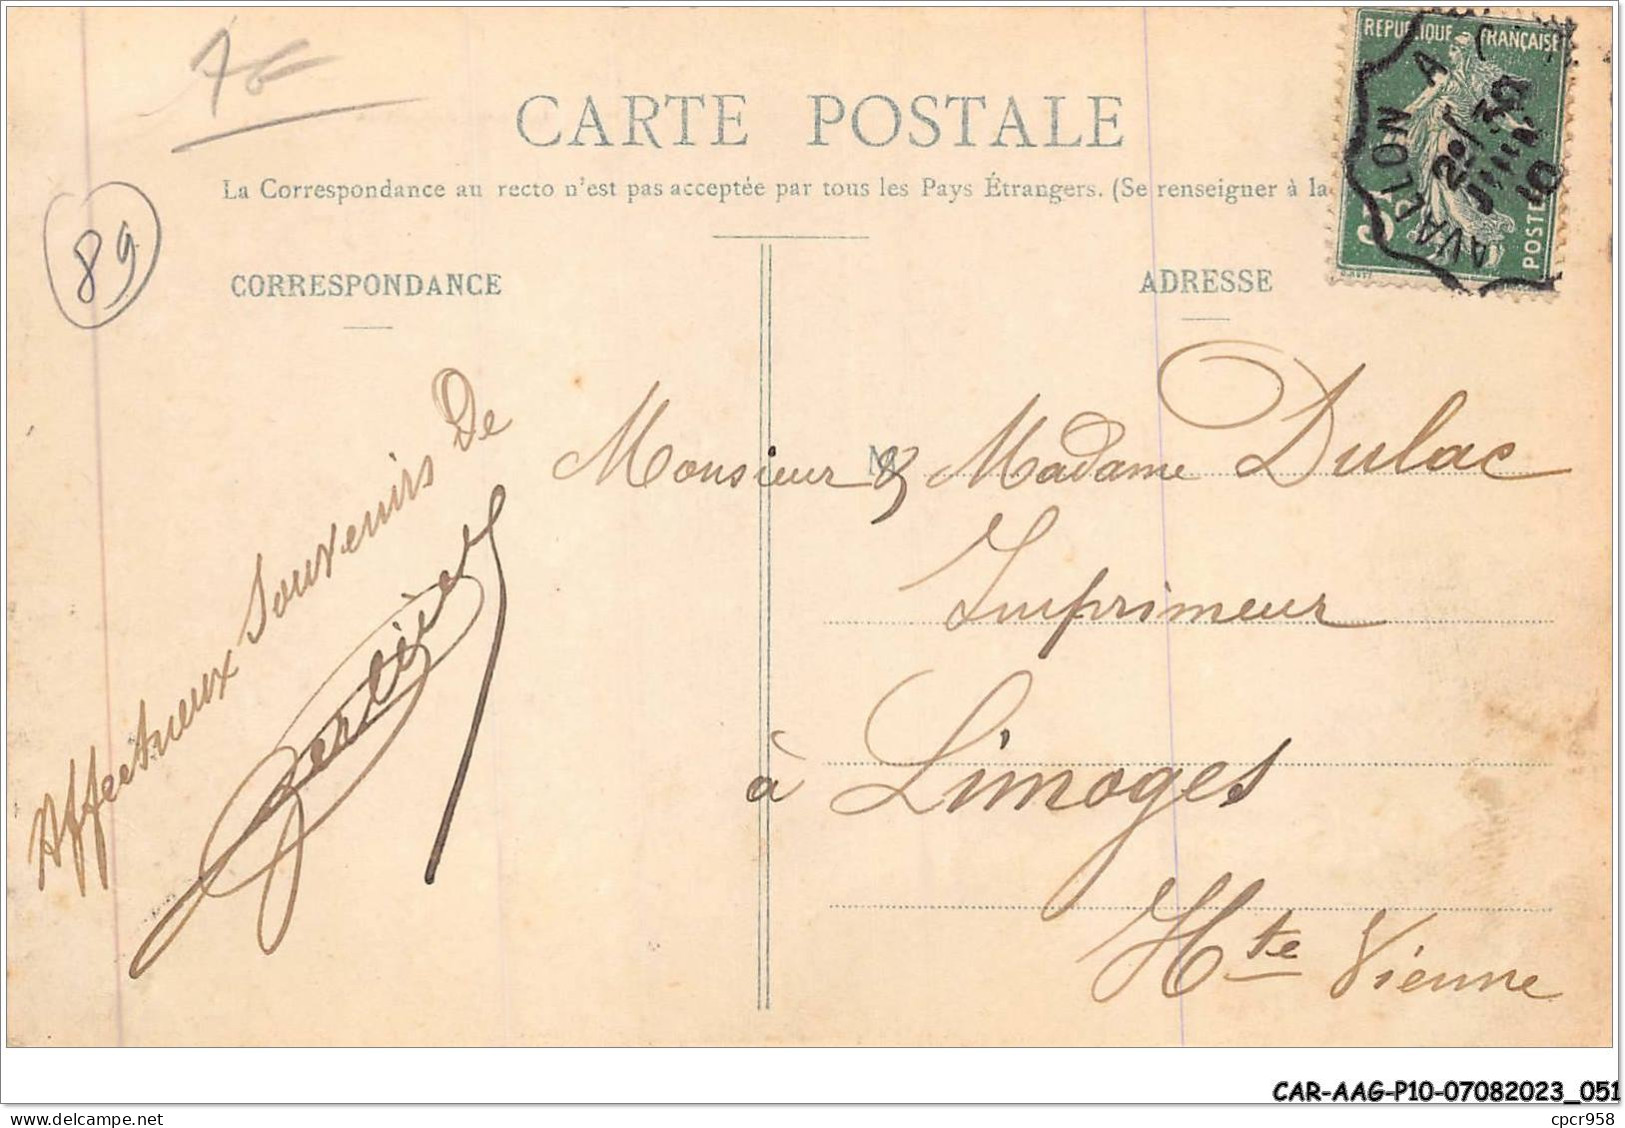 CARTE POSTALE
La Correspondance au recto n'est pas acceptée par tous les Pays Étrangers. (Se renseigner à la
REPUBLIQUE FRANÇAISE
POSTES
AVALLON A
89
CORRESPONDANCE
ADRESSE
Affectueux Souvenirs De
Monsieur & Madame Dulac
Imprimeur
à Limoges
Hte Vienne
CAR-AAG-P10-07082023_051
www.delcampe.net
cpcr958